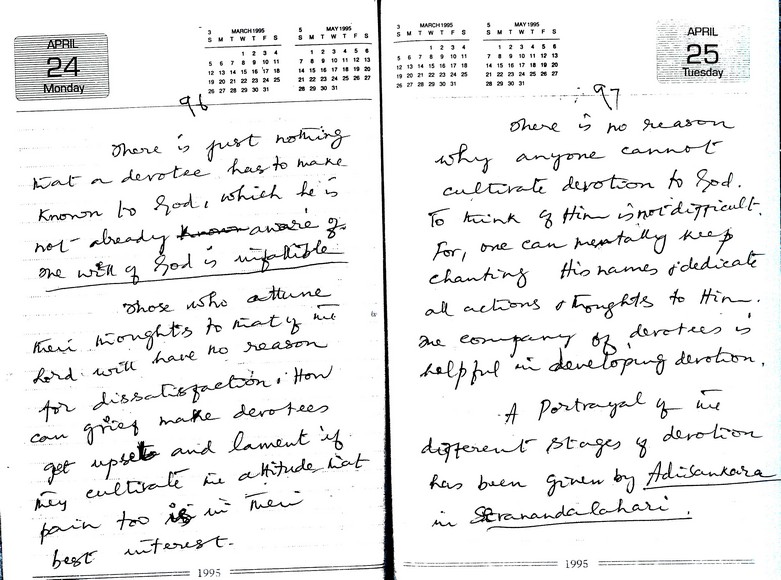 APRIL
24
Monday
3 MARCH 1995
S M T W T F S
1 2 3 4
5 6 7 8 9 10 11
12 13 14 15 16 17 18
19 20 21 22 23 24 25
26 27 28 29 30 31
5 MAY 1995
S M T W T F S
1 2 3 4 5 6
7 8 9 10 11 12 13
14 15 16 17 18 19 20
21 22 23 24 25 26 27
28 29 30 31
96
There is just nothing
that a devotee has to make
known to God, which he is
not already known aware of.
The will of God is infallible
Those who attune
their thoughts to that of the
Lord will have no reason
for dissatisfaction. How
can grief make devotees
get upset and lament if
they cultivate the attitude that
pain too is in their
best interest.
1995
3 MARCH 1995
S M T W T F S
1 2 3 4
5 6 7 8 9 10 11
12 13 14 15 16 17 18
19 20 21 22 23 24 25
26 27 28 29 30 31
5 MAY 1995
S M T W T F S
1 2 3 4 5 6
7 8 9 10 11 12 13
14 15 16 17 18 19 20
21 22 23 24 25 26 27
28 29 30 31
APRIL
25
Tuesday
97
There is no reason
why anyone cannot
cultivate devotion to God.
To think of Him is not difficult.
For, one can mentally keep
chanting His names & dedicate
all actions & thoughts to Him.
The company of devotees is
helpful in developing devotion.
A Portrayal of the
different stages of devotion
has been given by Adisankara
in Sivanandalahari.
1995